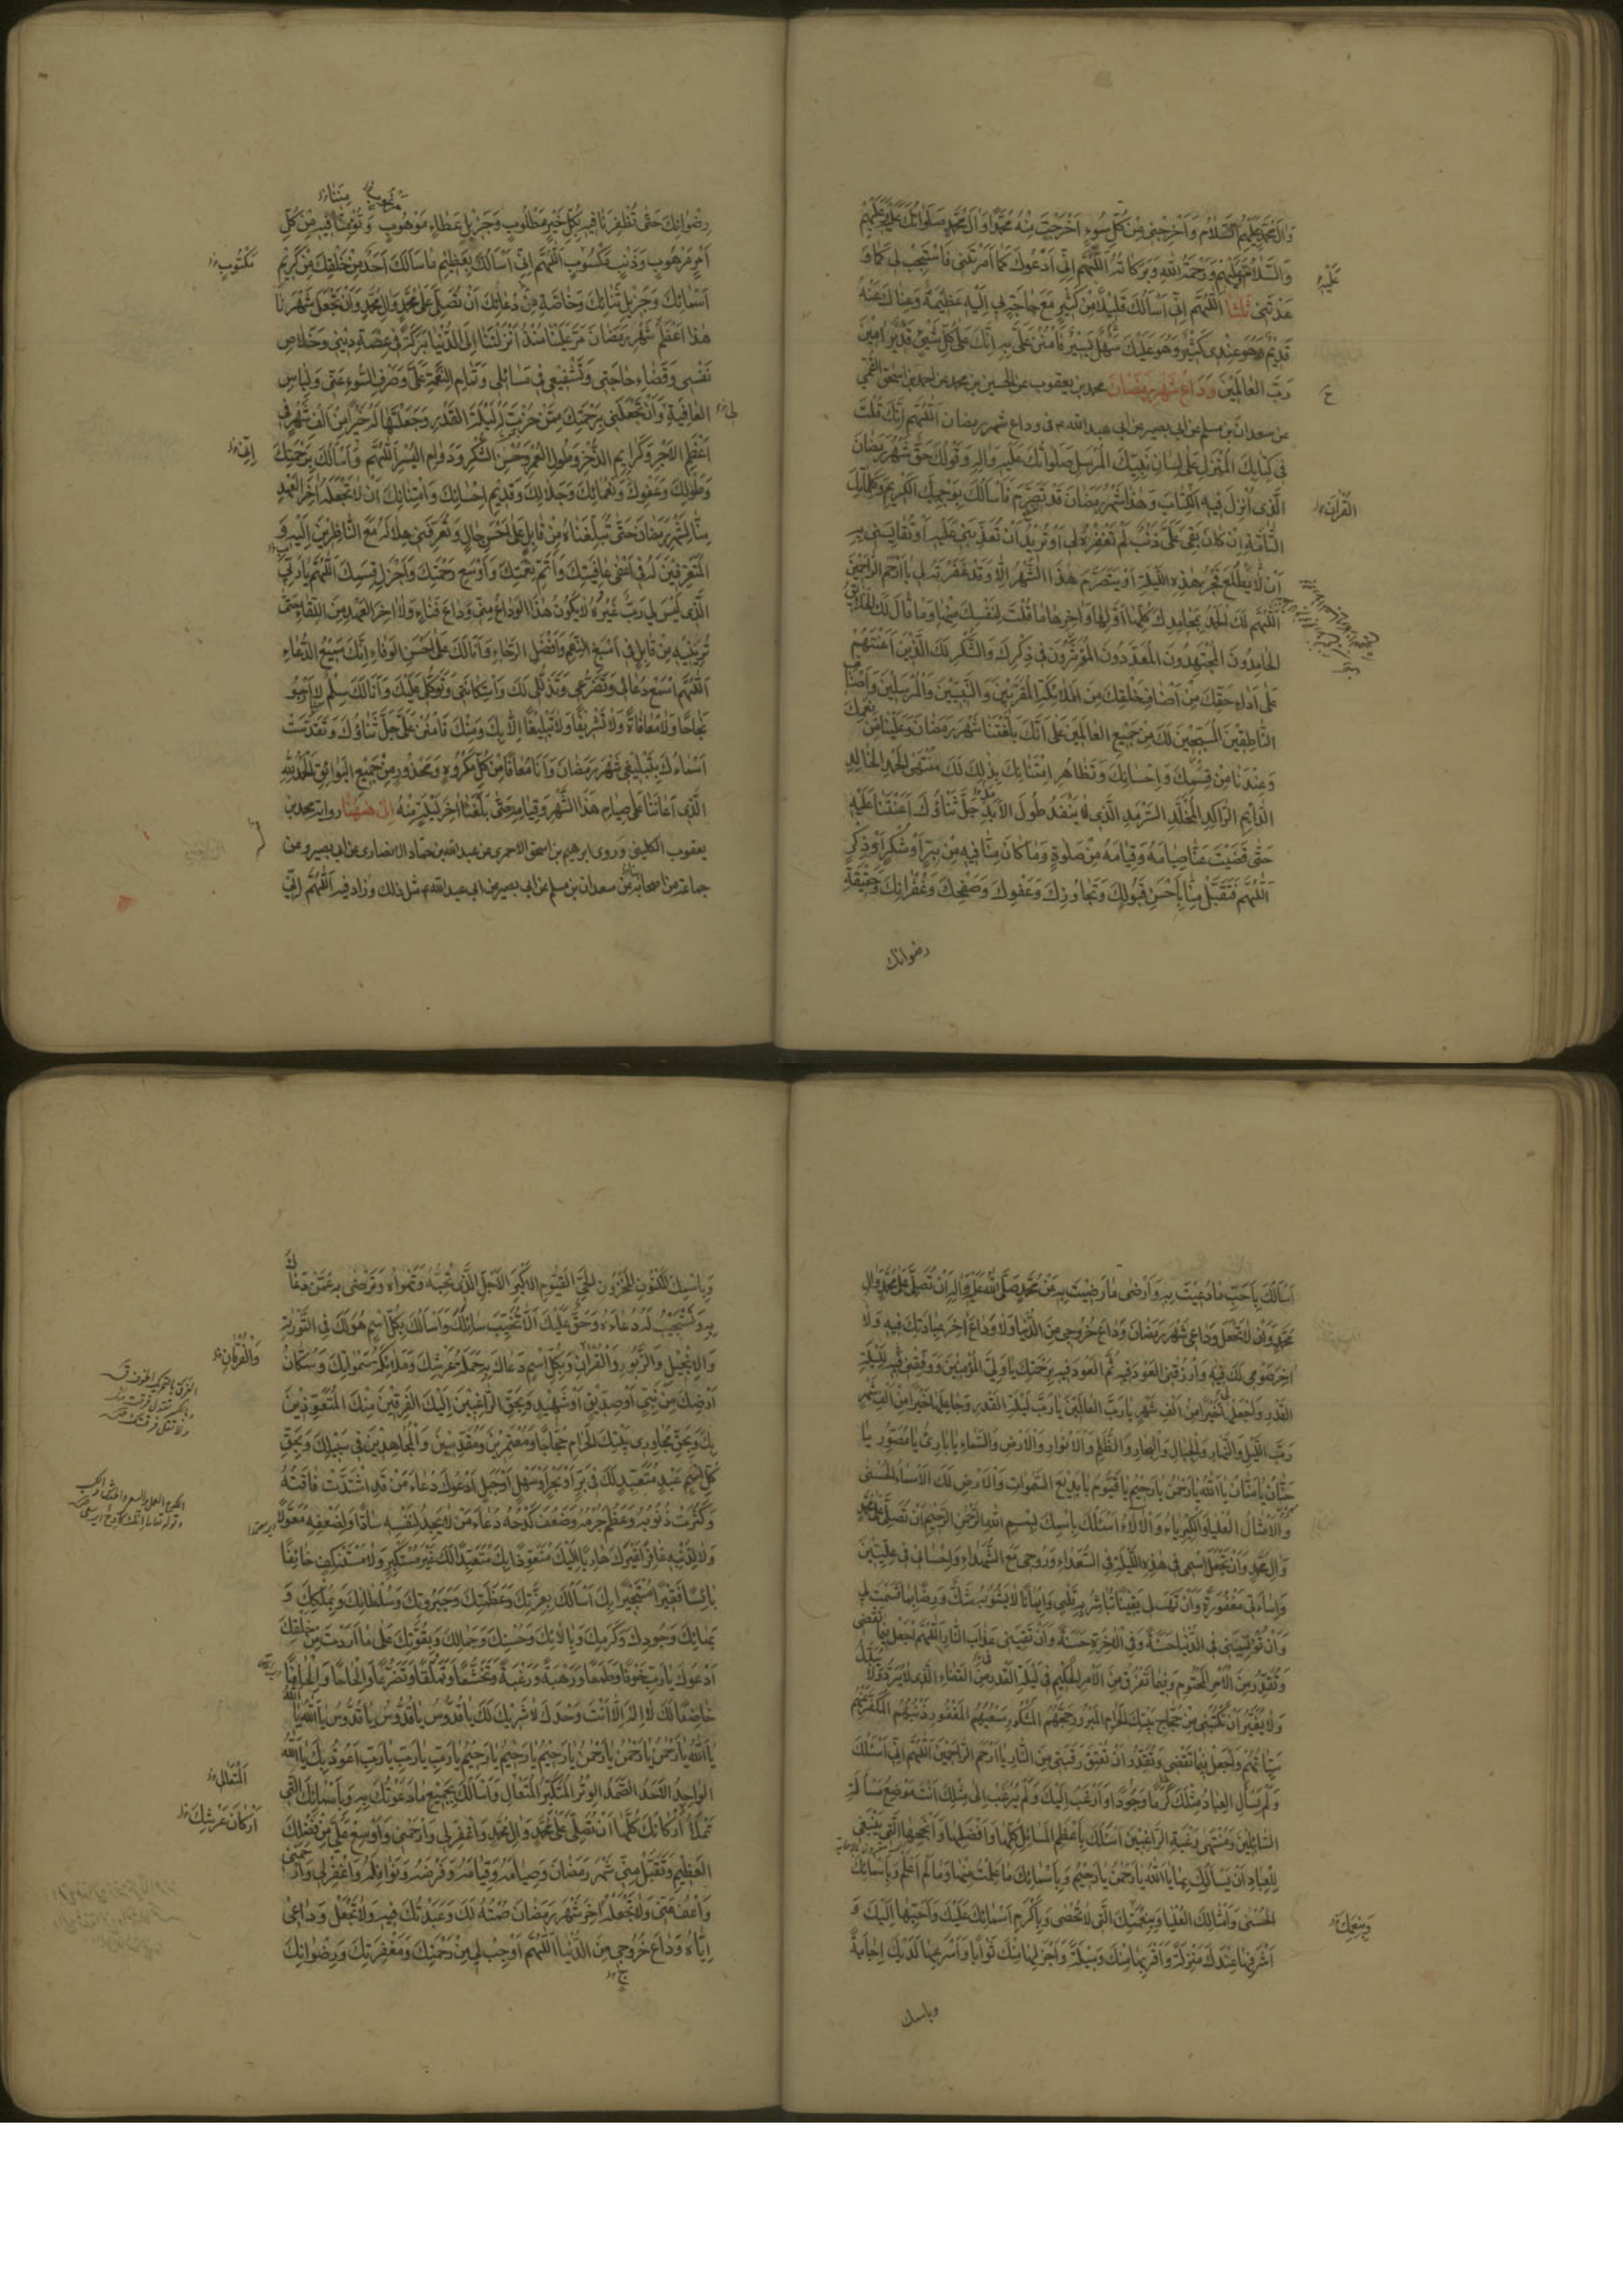 وَآلِ مُحَمَّدٍ عَلَيْهِمُ السَّلَامُ وَأَخْرِجْنِي مِنْ كُلِّ سُوءٍ أَخْرَجْتَ مِنْهُ مُحَمَّدًا وَآلَ مُحَمَّدٍ صَلَوَاتُكَ عَلَيْهِ وَعَلَيْهِمْ
وَالسَّلَامُ عَلَيْهِمْ وَرَحْمَةُ اللهِ وَبَرَكَاتُهُ اَللّٰهُمَّ اِنِّي اَدْعُوكَ كَمَا اَمَرْتَنِي فَاسْتَجِبْ لِي كَمَا وَ
عَدْتَنِي ثَلٰثًا اَللّٰهُمَّ اِنِّي اَسْاَلُكَ قَلِيلًا مِنْ كَثِيرٍ مَعَ حَاجَةٍ بِي اِلَيْهِ عَظِيمَةٍ وَغِنَاكَ عَنْهُ
قَدِيمٌ وَهُوَ عِنْدِي كَثِيرٌ وَهُوَ عَلَيْكَ سَهْلٌ يَسِيرٌ فَامْنُنْ عَلَيَّ بِهِ اِنَّكَ عَلٰى كُلِّ شَيْءٍ قَدِيرٌ اٰمِينَ
رَبَّ الْعَالَمِينَ وَدَاعُ شَهْرِ رَمَضَانَ محمد بن يعقوب عن الحسين بن محمد عن احمد بن اسحق القمي
عن سعدان بن مسلم عن ابي بصير عن ابي عبد الله ع في وداع شهر رمضان اَللّٰهُمَّ اِنَّكَ قُلْتَ
فِي كِتَابِكَ الْمُنْزَلِ عَلٰى لِسَانِ نَبِيِّكَ الْمُرْسَلِ صَلَوَاتُكَ عَلَيْهِ وَاٰلِهِ وَقَوْلُكَ حَقٌّ شَهْرُ رَمَضَانَ
الَّذِي اُنْزِلَ فِيهِ الْكِتَابُ وَهٰذَا شَهْرُ رَمَضَانَ قَدْ تَصَرَّمَ فَاَسْاَلُكَ بِوَجْهِكَ الْكَرِيمِ وَكَلِمَاتِكَ
التَّامَّةِ اِنْ كَانَ بَقِيَ عَلَيَّ ذَنْبٌ لَمْ تَغْفِرْهُ لِي اَوْ تُرِيدُ اَنْ تُعَذِّبَنِي عَلَيْهِ اَوْ تُقَايِسَنِي بِهِ
اَنْ لَا يَطْلُعَ فَجْرُ هٰذِهِ اللَّيْلَةِ اَوْ يَتَصَرَّمَ هٰذَا الشَّهْرُ اِلَّا وَقَدْ غَفَرْتَهُ لِي يَا اَرْحَمَ الرَّاحِمِينَ
اَللّٰهُمَّ لَكَ الْحَمْدُ بِمَحَامِدِكَ كُلِّهَا اَوَّلِهَا وَاٰخِرِهَا مَا قُلْتَ لِنَفْسِكَ مِنْهَا وَمَا قَالَ لَكَ الْخَلَائِقُ
الْحَامِدُونَ الْمُجْتَهِدُونَ الْمَعْدُودُونَ الْمُؤَثِّرُونَ فِي ذِكْرِكَ وَالشُّكْرِ لَكَ الَّذِينَ اَعَنْتَهُمْ
عَلٰى اَدَاءِ حَقِّكَ مِنْ اَصْنَافِ خَلْقِكَ مِنَ الْمَلَائِكَةِ الْمُقَرَّبِينَ وَالنَّبِيِّينَ وَالْمُرْسَلِينَ وَاَصْنَافِ
النَّاطِقِينَ الْمُسَبِّحِينَ لَكَ مِنْ جَمِيعِ الْعَالَمِينَ عَلٰى اَنَّكَ بَلَّغْتَنَا شَهْرَ رَمَضَانَ وَعَلَيْنَا مِنْ نِعَمِكَ
وَعِنْدَنَا مِنْ قِسَمِكَ وَاِحْسَانِكَ وَتَظَاهُرِ امْتِنَانِكَ بِذٰلِكَ لَكَ مُنْتَهَى الْحَمْدِ الْخَالِدِ
الدَّائِمِ الرَّاكِدِ الْمُخَلَّدِ السَّرْمَدِ الَّذِي لَا يَنْفَدُ طُولَ الْاَبَدِ جَلَّ ثَنَاؤُكَ اَعَنْتَنَا عَلَيْهِ
حَتّٰى قَضَيْتَ عَنَّا صِيَامَهُ وَقِيَامَهُ مِنْ صَلٰوةٍ وَمَا كَانَ مِنَّا فِيهِ مِنْ بِرٍّ اَوْ شُكْرٍ اَوْ ذِكْرٍ
اَللّٰهُمَّ فَتَقَبَّلْ مِنَّا بِاَحْسَنِ قَبُولِكَ وَتَجَاوُزِكَ وَعَفْوِكَ وَصَفْحِكَ وَغُفْرَانِكَ وَحَقِيقَةِ
رضوانك
عَلَيْهِ
الْقُرْآنُ
رِضْوَانِكَ حَتّٰى تُظْفِرَنَا فِيهِ بِكُلِّ خَيْرٍ مَطْلُوبٍ وَجَزِيلِ عَطَاءٍ مَوْهُوبٍ وَتُؤْمِنَنَا فِيهِ مِنْ كُلِّ
اَمْرٍ مَرْهُوبٍ وَذَنْبٍ مَكْسُوبٍ اَللّٰهُمَّ اِنِّي اَسْاَلُكَ بِعَظِيمِ مَا سَاَلَكَ اَحَدٌ مِنْ خَلْقِكَ مِنْ كَرِيمِ
اَسْمَائِكَ وَجَزِيلِ ثَنَائِكَ وَخَاصَّةِ دُعَائِكَ اَنْ تُصَلِّيَ عَلٰى مُحَمَّدٍ وَاٰلِ مُحَمَّدٍ وَاَنْ تَجْعَلَ شَهْرَنَا
هٰذَا اَعْظَمَ شَهْرِ رَمَضَانَ مَرَّ عَلَيْنَا مُنْذُ اَنْزَلْتَنَا اِلَى الدُّنْيَا بَرَكَةً فِي عِصْمَةِ دِينِي وَخَلَاصِ
نَفْسِي وَقَضَاءِ حَاجَتِي وَتُشَفِّعَنِي فِي مَسَائِلِي وَتَمَامِ النِّعْمَةِ عَلَيَّ وَصَرْفِ السُّوءِ عَنِّي وَلِبَاسِ
الْعَافِيَةِ وَاَنْ تَجْعَلَنِي بِرَحْمَتِكَ مِمَّنْ حُزْتَ لَهُ لَيْلَةَ الْقَدْرِ وَجَعَلْتَهَا لَهُ خَيْرًا مِنْ اَلْفِ شَهْرٍ فِي
اَعْظَمِ الْاَجْرِ وَكَرَائِمِ الذُّخْرِ وَطُولِ الْعُمْرِ وَحُسْنِ الشُّكْرِ وَدَوَامِ الْيُسْرِ اَللّٰهُمَّ وَاَسْاَلُكَ بِرَحْمَتِكَ
وَطَوْلِكَ وَعَفْوِكَ وَنَعْمَائِكَ وَجَلَالِكَ وَقَدِيمِ اِحْسَانِكَ وَامْتِنَانِكَ اَنْ لَا تَجْعَلَهُ اٰخِرَ الْعَهْدِ
مِنَّا لِشَهْرِ رَمَضَانَ حَتّٰى تُبَلِّغَنَاهُ مِنْ قَابِلٍ عَلٰى اَحْسَنِ حَالٍ وَتُعَرِّفَنِي هِلَالَهُ مَعَ النَّاظِرِينَ اِلَيْهِ وَ
الْمُتَعَرِّفِينَ لَهُ فِي اَعْفٰى عَافِيَتِكَ وَاَتَمِّ نِعْمَتِكَ وَاَوْسَعِ رَحْمَتِكَ وَاَجْزَلِ قِسَمِكَ اَللّٰهُمَّ يَا رَبِّيَ
الَّذِي لَيْسَ لِي رَبٌّ غَيْرُهُ لَا يَكُونُ هٰذَا الْوَدَاعُ مِنِّي وَدَاعَ فَنَاءٍ وَلَا اٰخِرَ الْعَهْدِ مِنَ اللِّقَاءِ حَتّٰى
تُرِيَنِيهِ مِنْ قَابِلٍ فِي اَسْبَغِ النِّعَمِ وَاَفْضَلِ الرَّجَاءِ وَاَنَا لَكَ عَلٰى اَحْسَنِ الْوَفَاءِ اِنَّكَ سَمِيعُ الدُّعَاءِ
اَللّٰهُمَّ اسْمَعْ دُعَائِي وَتَضَرُّعِي وَتَذَلُّلِي لَكَ وَاسْتِكَانَتِي وَتَوَكُّلِي عَلَيْكَ وَاَنَا لَكَ سِلْمٌ لَا اَرْجُو
نَجَاحًا وَلَا مُعَافَاةً وَلَا تَشْرِيفًا وَلَا تَبْلِيغًا اِلَّا بِكَ وَمِنْكَ فَامْنُنْ عَلَيَّ جَلَّ ثَنَاؤُكَ وَتَقَدَّسَتْ
اَسْمَاؤُكَ بِتَبْلِيغِي شَهْرَ رَمَضَانَ وَاَنَا مُعَافًا مِنْ كُلِّ مَكْرُوهٍ وَمَحْذُورٍ مِنْ جَمِيعِ الْبَوَائِقِ اَلْحَمْدُ لِلّٰهِ
الَّذِي اَعَانَنَا عَلٰى صِيَامِ هٰذَا الشَّهْرِ وَقِيَامِهِ حَتّٰى بَلَّغَنَا اٰخِرَ لَيْلَةٍ مِنْهُ اِلٰى هٰهُنَا رواية محمد بن
يعقوب الكليني وروى ابرهيم بن اسحق الاحمري عن عبد الله بن حماد الانصاري عن ابي بصير وعن
جماعة من اصحابه عن سعدان بن مسلم عن ابي بصير عن ابي عبد الله ع مثل ذلك وزاد فيه اَللّٰهُمَّ اِنِّي
مَكْتُوبٍ
اَسْاَلُكَ بِاَحَبِّ مَا دُعِيتَ بِهِ وَاَرْضٰى مَا رَضِيتَ بِهِ مِنْ مُحَمَّدٍ صَلَّى اللهُ عَلَيْهِ وَاٰلِهِ اَنْ تُصَلِّيَ عَلٰى مُحَمَّدٍ وَاٰلِ
مُحَمَّدٍ وَاَنْ لَا تَجْعَلَ وَدَاعِي شَهْرَ رَمَضَانَ وَدَاعَ خُرُوجِي مِنَ الدُّنْيَا وَلَا وَدَاعَ اٰخِرِ عِبَادَتِكَ فِيهِ وَلَا
اٰخِرَ صَوْمِي لَكَ فِيهِ وَارْزُقْنِي الْعَوْدَ فِيهِ ثُمَّ الْعَوْدَ فِيهِ بِرَحْمَتِكَ يَا وَلِيَّ الْمُؤْمِنِينَ وَوَفِّقْنِي فِيهِ لِلَيْلَةِ
الْقَدْرِ وَاجْعَلْهَا لِي خَيْرًا مِنْ اَلْفِ شَهْرٍ يَا رَبَّ الْعَالَمِينَ يَا رَبَّ لَيْلَةِ الْقَدْرِ وَجَاعِلَهَا خَيْرًا مِنْ اَلْفِ شَهْرٍ
رَبَّ اللَّيْلِ وَالنَّهَارِ وَالْجِبَالِ وَالْبِحَارِ وَالظُّلَمِ وَالْاَنْوَارِ وَالْاَرْضِ وَالسَّمَاءِ يَا بَارِئُ يَا مُصَوِّرُ يَا
حَنَّانُ يَا مَنَّانُ يَا اَللهُ يَا رَحْمٰنُ يَا رَحِيمُ يَا قَيُّومُ يَا بَدِيعَ السَّمٰوَاتِ وَالْاَرْضِ لَكَ الْاَسْمَاءُ الْحُسْنٰى
وَالْاَمْثَالُ الْعُلْيَا وَالْكِبْرِيَاءُ وَالْاٰلَاءُ اَسْئَلُكَ بِاسْمِكَ بِسْمِ اللهِ الرَّحْمٰنِ الرَّحِيمِ اَنْ تُصَلِّيَ عَلٰى مُحَمَّدٍ
وَاٰلِ مُحَمَّدٍ وَاَنْ تَجْعَلَ اسْمِي فِي هٰذِهِ اللَّيْلَةِ فِي السُّعَدَاءِ وَرُوحِي مَعَ الشُّهَدَاءِ وَاِحْسَانِي فِي عِلِّيِّينَ
وَاِسَاءَتِي مَغْفُورَةً وَاَنْ تَهَبَ لِي يَقِينًا تُبَاشِرُ بِهِ قَلْبِي وَاِيمَانًا لَا يَشُوبُهُ شَكٌّ وَرِضًا بِمَا قَسَمْتَ لِي
وَاَنْ تُؤْتِيَنِي فِي الدُّنْيَا حَسَنَةً وَفِي الْاٰخِرَةِ حَسَنَةً وَاَنْ تَقِيَنِي عَذَابَ النَّارِ اَللّٰهُمَّ اجْعَلْ فِيمَا تَقْضِي
وَتُقَدِّرُ مِنَ الْاَمْرِ الْمَحْتُومِ وَفِيمَا تَفْرُقُ مِنَ الْاَمْرِ الْحَكِيمِ فِي لَيْلَةِ الْقَدْرِ مِنَ الْقَضَاءِ الَّذِي لَا يُرَدُّ وَلَا يُبَدَّلُ
وَلَا يُغَيَّرُ اَنْ تَكْتُبَنِي مِنْ حُجَّاجِ بَيْتِكَ الْحَرَامِ الْمَبْرُورِ حَجُّهُمْ الْمَشْكُورِ سَعْيُهُمُ الْمَغْفُورِ ذَنْبُهُمُ الْمُكَفَّرِ عَنْهُمْ
سَيِّئَاتُهُمْ وَاجْعَلْ فِيمَا تَقْضِي وَتُقَدِّرُ اَنْ تُعْتِقَ رَقَبَتِي مِنَ النَّارِ يَا اَرْحَمَ الرَّاحِمِينَ اَللّٰهُمَّ اِنِّي اَسْئَلُكَ
وَلَمْ يَسْاَلِ الْعِبَادُ مِثْلَكَ كَرَمًا وَجُودًا وَاَرْغَبُ اِلَيْكَ وَلَمْ يُرْغَبْ اِلٰى مِثْلِكَ اَنْتَ مَوْضِعُ مَسْاَلَةِ
السَّائِلِينَ وَمُنْتَهٰى رَغْبَةِ الرَّاغِبِينَ اَسْئَلُكَ بِاَعْظَمِ الْمَسَائِلِ كُلِّهَا وَاَفْضَلِهَا وَاَنْجَحِهَا الَّتِي يَنْبَغِي
لِلْعِبَادِ اَنْ يَسْاَلُوكَ بِهَا يَا اَللهُ يَا رَحْمٰنُ يَا رَحِيمُ وَبِاَسْمَائِكَ مَا عَلِمْتُ مِنْهَا وَمَا لَمْ اَعْلَمْ وَبِاَسْمَائِكَ
الْحُسْنٰى وَاَمْثَالِكَ الْعُلْيَا وَبِنِعْمَتِكَ الَّتِي لَا تُحْصٰى وَبِاَكْرَمِ اَسْمَائِكَ عَلَيْكَ وَاَحَبِّهَا اِلَيْكَ وَ
اَشْرَفِهَا عِنْدَكَ مَنْزِلَةً وَاَقْرَبِهَا مِنْكَ وَسِيلَةً وَاَجْزَلِهَا مِنْكَ ثَوَابًا وَاَسْرَعِهَا لَدَيْكَ اِجَابَةً
وباسمك
وَبِاسْمِكَ الْمَكْنُونِ الْمَخْزُونِ الْحَيِّ الْقَيُّومِ الْاَكْبَرِ الْاَجَلِّ الَّذِي تُحِبُّهُ وَتَهْوَاهُ وَتَرْضٰى بِهِ عَمَّنْ دَعَاكَ
بِهِ وَتَسْتَجِيبُ لَهُ دُعَاءَهُ وَحَقٌّ عَلَيْكَ اَلَّا تُخَيِّبَ سَائِلَكَ وَاَسْاَلُكَ بِكُلِّ اسْمٍ هُوَ لَكَ فِي التَّوْرٰيةِ
وَالْاِنْجِيلِ وَالزَّبُورِ وَالْقُرْاٰنِ وَبِكُلِّ اسْمٍ دَعَاكَ بِهِ حَمَلَةُ عَرْشِكَ وَمَلَائِكَةُ سَمٰوَاتِكَ وَسُكَّانُ
اَرْضِكَ مِنْ نَبِيٍّ اَوْ صِدِّيقٍ اَوْ شَهِيدٍ وَبِحَقِّ الرَّاغِبِينَ اِلَيْكَ الْفَرِقِينَ مِنْكَ الْمُتَعَوِّذِينَ
بِكَ وَبِحَقِّ مُجَاوِرِي بَيْتِكَ الْحَرَامِ حُجَّاجًا وَمُعْتَمِرِينَ وَمُقَدِّسِينَ وَالْمُجَاهِدِينَ فِي سَبِيلِكَ وَبِحَقِّ
كُلِّ عَبْدٍ مُتَعَبِّدٍ لَكَ فِي بَرٍّ اَوْ بَحْرٍ اَوْ سَهْلٍ اَوْ جَبَلٍ اَدْعُوكَ دُعَاءَ مَنْ قَدِ اشْتَدَّتْ فَاقَتُهُ
وَكَثُرَتْ ذُنُوبُهُ وَعَظُمَ جُرْمُهُ وَضَعُفَ كَدْحُهُ دُعَاءَ مَنْ لَا يَجِدُ لِنَفْسِهِ سَادًّا وَلَا لِضَعْفِهِ مُعَوَّلًا
وَلَا لِذَنْبِهِ غَافِرًا غَيْرَكَ هَارِبًا اِلَيْكَ مُتَعَوِّذًا بِكَ مُتَعَبِّدًا لَكَ غَيْرَ مُسْتَكْبِرٍ وَلَا مُسْتَنْكِفٍ خَائِفًا
بَائِسًا فَقِيرًا مُسْتَجِيرًا بِكَ اَسْاَلُكَ بِعِزَّتِكَ وَعَظَمَتِكَ وَجَبَرُوتِكَ وَسُلْطَانِكَ وَبِمُلْكِكَ وَ
بِبَهَائِكَ وَجُودِكَ وَكَرَمِكَ وَبِاٰلَائِكَ وَحُسْنِكَ وَجَمَالِكَ وَبِقُوَّتِكَ عَلٰى مَا اَرَدْتَ مِنْ خَلْقِكَ
اَدْعُوكَ يَا رَبِّ خَوْفًا وَطَمَعًا وَرَهْبَةً وَرَغْبَةً وَتَخَشُّعًا وَتَمَلُّقًا وَتَضَرُّعًا وَاِلْحَاحًا وَاِلْحَافًا
خَاضِعًا لَكَ لَا اِلٰهَ اِلَّا اَنْتَ وَحْدَكَ لَا شَرِيكَ لَكَ يَا قُدُّوسُ يَا قُدُّوسُ يَا قُدُّوسُ يَا اَللهُ يَا اَللهُ
يَا اَللهُ يَا رَحْمٰنُ يَا رَحْمٰنُ يَا رَحْمٰنُ يَا رَحِيمُ يَا رَحِيمُ يَا رَحِيمُ يَا رَبِّ يَا رَبِّ يَا رَبِّ اَعُوذُ بِكَ يَا اَللهُ
الْوَاحِدُ الْاَحَدُ الصَّمَدُ الْوِتْرُ الْمُتَكَبِّرُ الْمُتَعَالِ وَاَسْاَلُكَ بِجَمِيعِ مَا دَعَوْتُكَ بِهِ وَبِاَسْمَائِكَ الَّتِي
تَمْلَأُ اَرْكَانَكَ كُلَّهَا اَنْ تُصَلِّيَ عَلٰى مُحَمَّدٍ وَاٰلِ مُحَمَّدٍ وَاغْفِرْ لِي وَارْحَمْنِي وَاَوْسِعْ عَلَيَّ مِنْ فَضْلِكَ
الْعَظِيمِ وَتَقَبَّلْ مِنِّي شَهْرَ رَمَضَانَ وَصِيَامَهُ وَقِيَامَهُ وَفَرْضَهُ وَنَوَافِلَهُ وَاغْفِرْ لِي وَارْحَمْنِي
وَاعْفُ عَنِّي وَلَا تَجْعَلْهُ اٰخِرَ شَهْرِ رَمَضَانَ صُمْتُهُ لَكَ وَعَبَدْتُكَ فِيهِ وَلَا تَجْعَلْ وَدَاعِي
اِيَّاهُ وَدَاعَ خُرُوجِي مِنَ الدُّنْيَا اَللّٰهُمَّ اَوْجِبْ لِي مِنْ رَحْمَتِكَ وَمَغْفِرَتِكَ وَرِضْوَانِكَ
وَالْفُرْقَانِ
الْمُتَعَالِ
اَرْكَانَ عَرْشِكَ